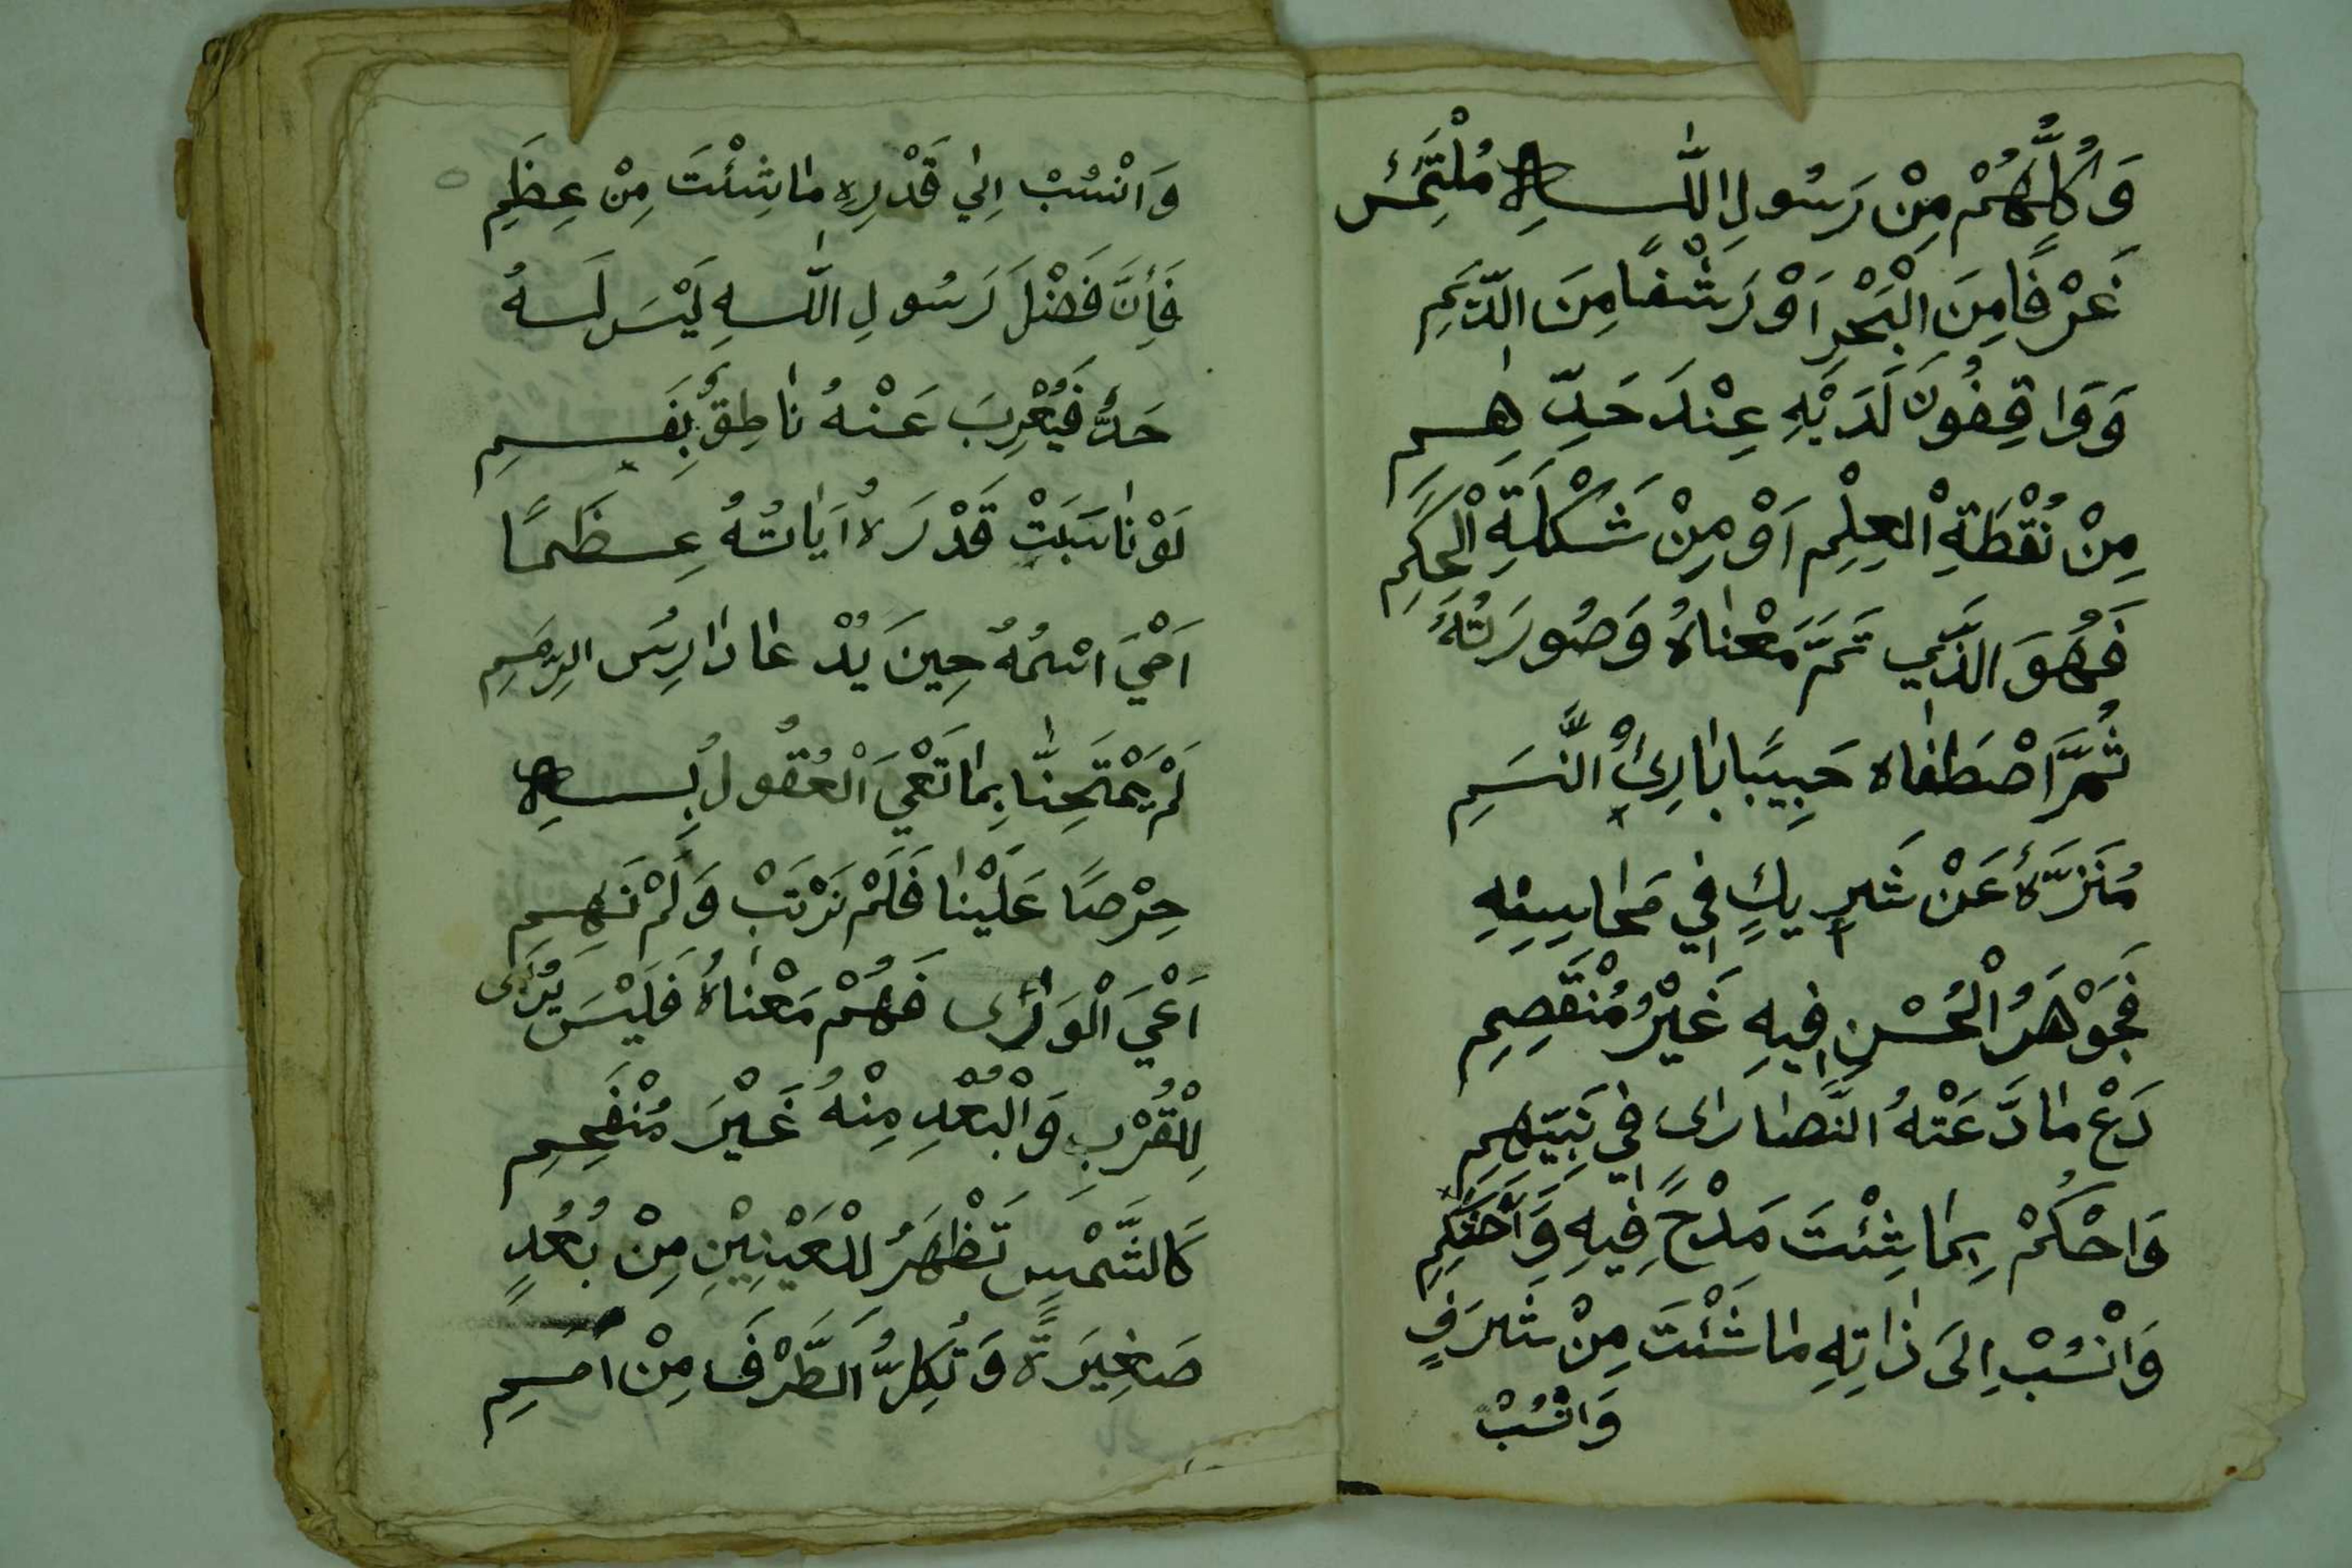 وَكُلُّهُمْ مِنْ رَسُولِ اللّٰهِ مُلْتَمِسٌ
غَرْفًا مِنَ الْبَحْرِ اَوْ رَشْفًا مِنَ الدِّيَمِ
وَوَاقِفُونَ لَدَيْهِ عِنْدَ حَدِّهِمِ
مِنْ نُقْطَةِ الْعِلْمِ اَوْ مِنْ شَكْلَةِ الْحِكَمِ
فَهُوَ الَّذِي تَمَّ مَعْنَاهُ وَصُورَتُهُ
ثُمَّ اصْطَفَاهُ حَبِيبًا بَارِئُ النَّسَمِ
مُنَزَّهٌ عَنْ شَرِيكٍ فِي مَحَاسِنِهِ
فَجَوْهَرُ الْحُسْنِ فِيهِ غَيْرُ مُنْقَصِمِ
دَعْ مَا دَّعَتْهُ النَّصَارَى فِي نَبِيِّهِمِ
وَاحْكُمْ بِمَا شِئْتَ مَدْحًا فِيهِ وَاحْتَكِمِ
وَانْسُبْ اِلَى ذَاتِهِ مَا شَئْتَ مِنْ شَرَفٍ
وَانْسُبْ
وَانْسُبْ اِلَي قَدْرِهِ مَا شِئْتَ مِنْ عِظَمِ
فَأِنَّ فَضْلَ رَسُولِ اللّٰهِ لَيْسَ لَهُ
حَدٌّ فَيُعْرِبَ عَنْهُ نَاطِقٌ بِفَمِ
لَوْ نَاسَبَتْ قَدْرَهُ اٰيَاتُهُ عِظَمًا
اَحْيَ اسْمُهُ حِينَ يُدْعَا دَارِسَ الرِّمَمِ
لَمْ يَمْتَحِنَّا بِمَا تَعْيَ الْعُقُولُ بِهِ
حِرْصًا عَلَيْنَا فَلَمْ نَرْتَبْ وَلَمْ نَهِمِ
اَعْيَ الْوَرَى فَهْمُ مَعْنَاهُ فَلَيْسَ يُرَى
لِلْقُرْبِ وَالْبُعْدِ مِنْهُ غَيْرَ مُنْفَحِمِ
كَالشَّمْسِ تَظْهَرُ لِلْعَيْنَيْنِ مِنْ بُعُدٍ
صَغِيرَةً وَتُكِلُّ الطَّرْفَ مِنْ اَمَمِ